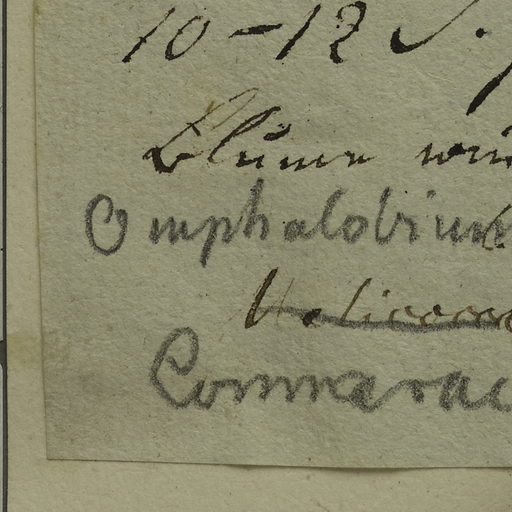 10-12 S.
Blume wei
Omphalobium
Connarac